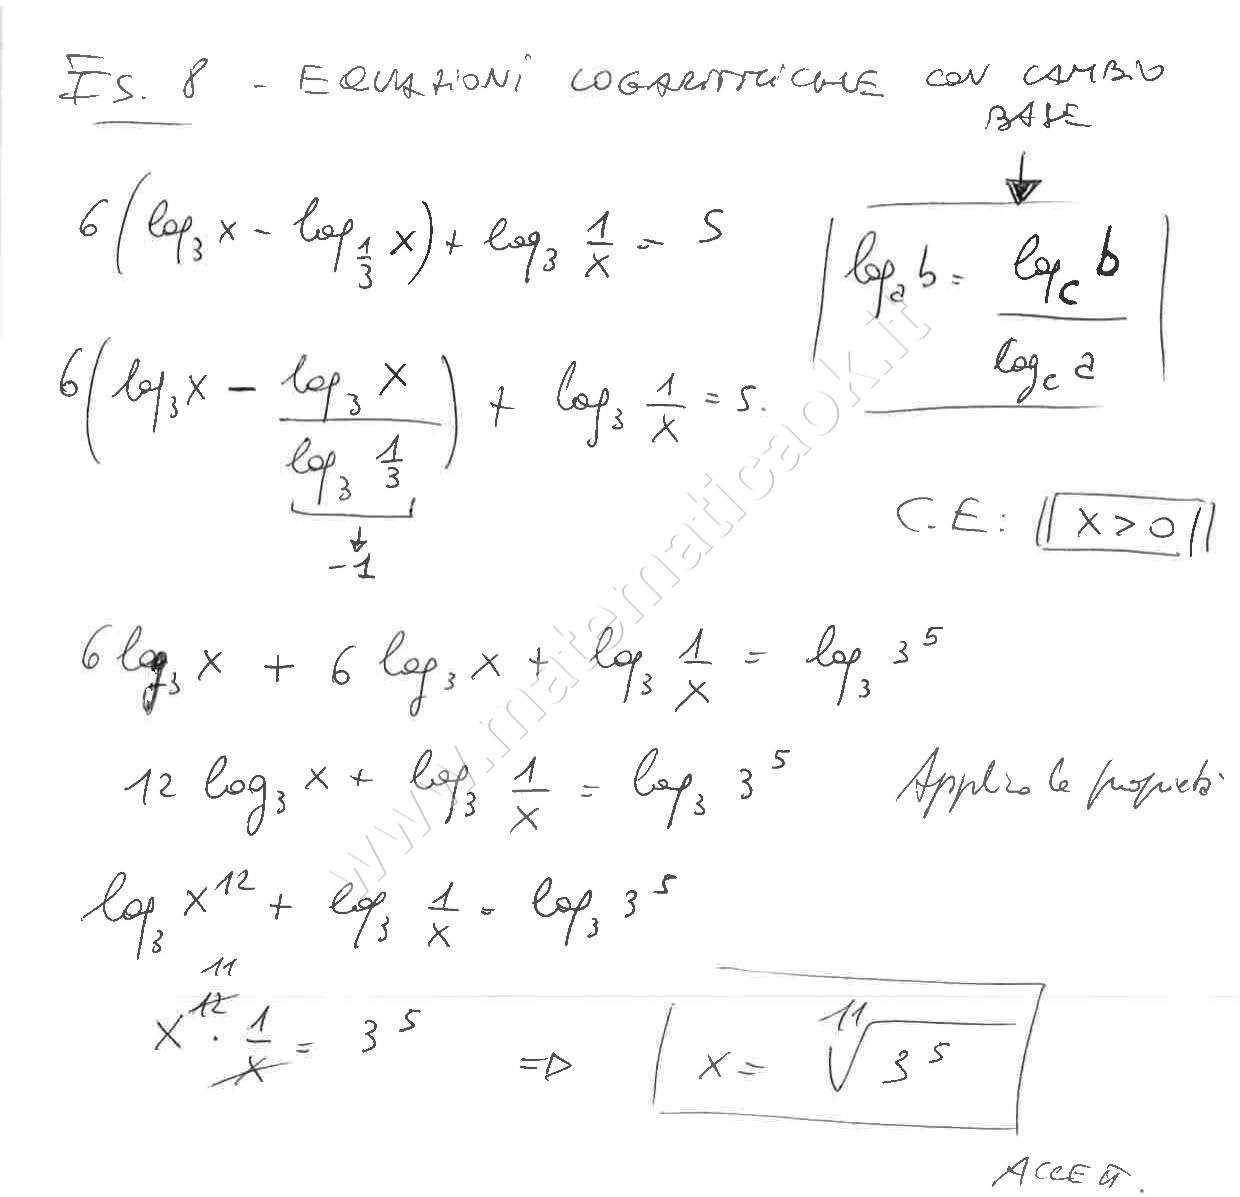 ES. 8 - EQUAZIONI LOGARITMICHE CON CAMBIO
BASE
6(log₃ x - log_{1/3} x) + log₃ 1/x = 5
logₐ b = log_c b / log_c a
6(log₃ x - log₃ x / log₃ 1/3) + log₃ 1/x = 5.
-1
C.E: x > 0
6 log₃ x + 6 log₃ x + log₃ 1/x = log₃ 3⁵
12 log₃ x + log₃ 1/x = log₃ 3⁵ Applico le proprietà
log₃ x¹² + log₃ 1/x = log₃ 3⁵
11
x¹² · 1/x = 3⁵ => x = ¹¹√3⁵
ACCETT.
www.matematicaok.it